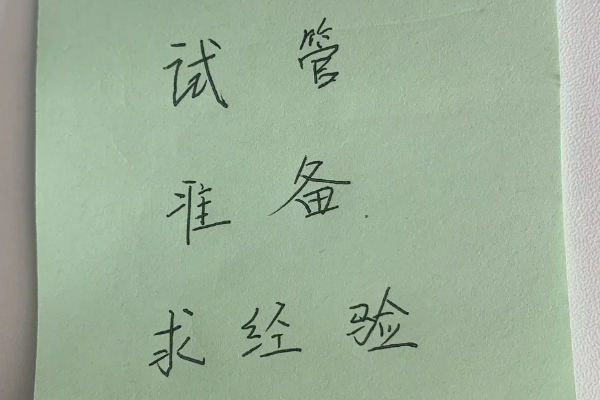 试管
准备
求经验